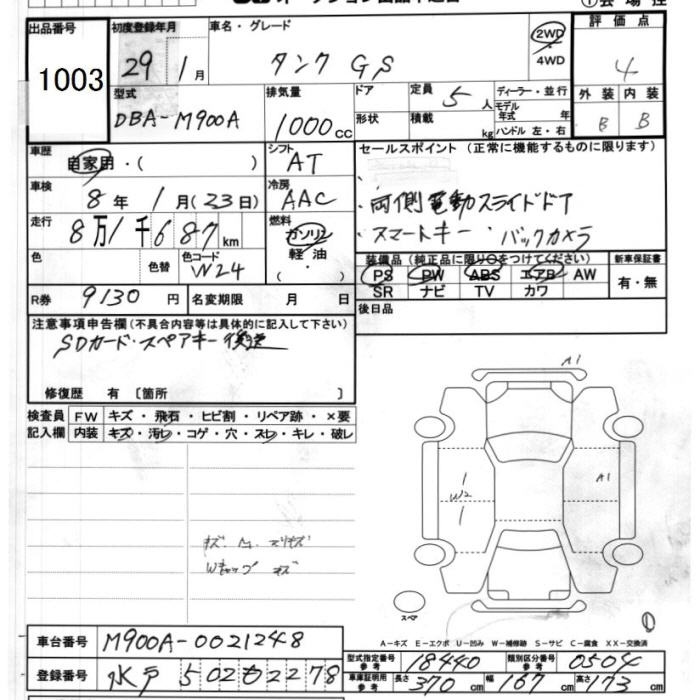 出品番号 1003
初度登録年月 29 1月
車名・グレード タンク GS
2WD・4WD
評価点 4
外装 内装
B B
型式 DBA-M900A
排気量 1000cc
ドア
形状
定員 5人
積載 kg
ディーラー・並行
モデル年式 年
ハンドル 左・右
車歴 自家用・( )
シフト AT
車検 8年 1月(23日)
冷房 AAC
走行 8万1千687km
燃料 ガソリン 軽油・
色 色替 色コード W24
R券 9130円 名変期限 月 日
セールスポイント (正常に機能するものに限ります)
・両側電動スライドドア
・スマートキー・バックカメラ
装備品 (純正品に限り○をつけてください) 新車保証書
PS PW ABS エアB AW 有・無
SR ナビ TV カワ
後日品
注意事項申告欄 (不具合内容等は具体的に記入して下さい)
SDカード・スペアキー後送
修復歴 有 〔箇所 〕
検査員 FW キズ・飛石・ヒビ割・リペア跡・×要
記入欄 内装 キズ・汚レ・コゲ・穴・スレ・キレ・破レ
A1
W2
A1
Wキャップ キズ
スペア
A-キズ E-エクボ U-凹み W-補修跡 S-サビ C-腐食 XX-交換済
車台番号 M900A-0021248
登録番号 水戸 502 も 2278
型式指定番号 参考 18440 類別区分番号 参考 0504
車庫証明用 参考 長さ 370cm 幅 167cm 高さ 173cm